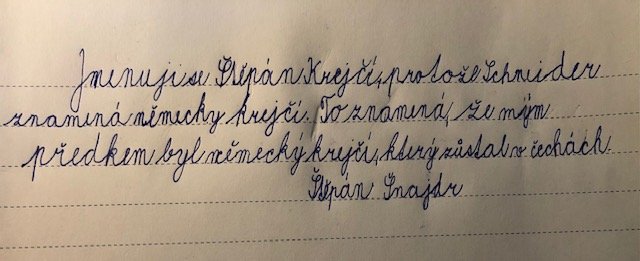 Jmenuji se Štěpán Krejčí, protože Schneider
znamená německy krejčí. To znamená, že mým
předkem byl německý krejčí, který zůstal v čechách.
Štěpán Šnajdr